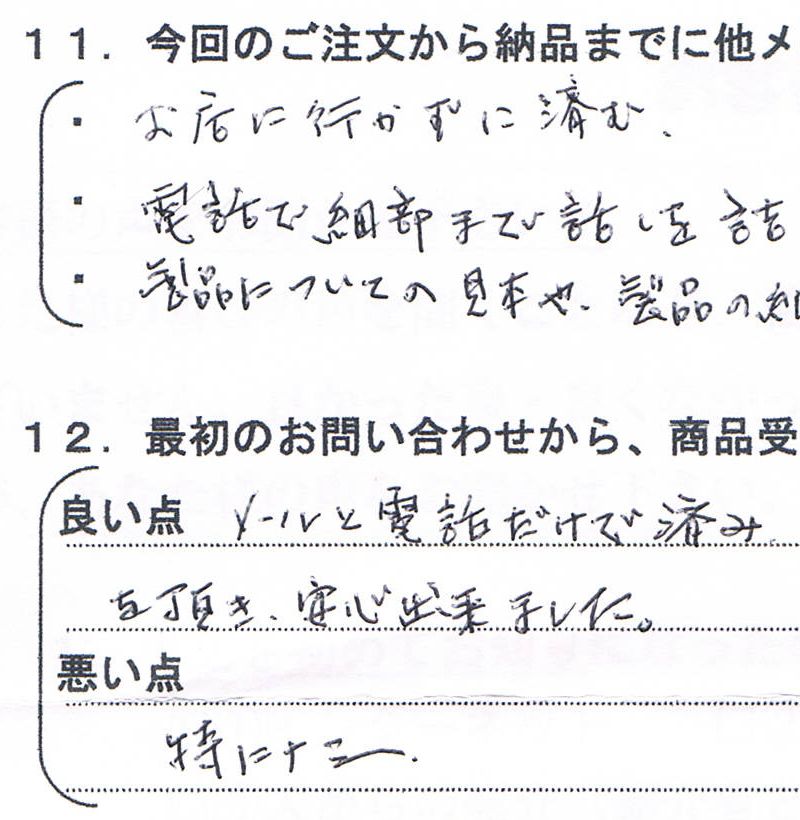 11．今回のご注文から納品までに他メ
・ お店に行かずに済む、
・ 電話で細部まで話しを詰
・ 製品についての見本や、製品の細
12．最初のお問い合わせから、商品受
良い点 メールと電話だけで済み、
を頂き、安心出来ました。
悪い点
特にナシ